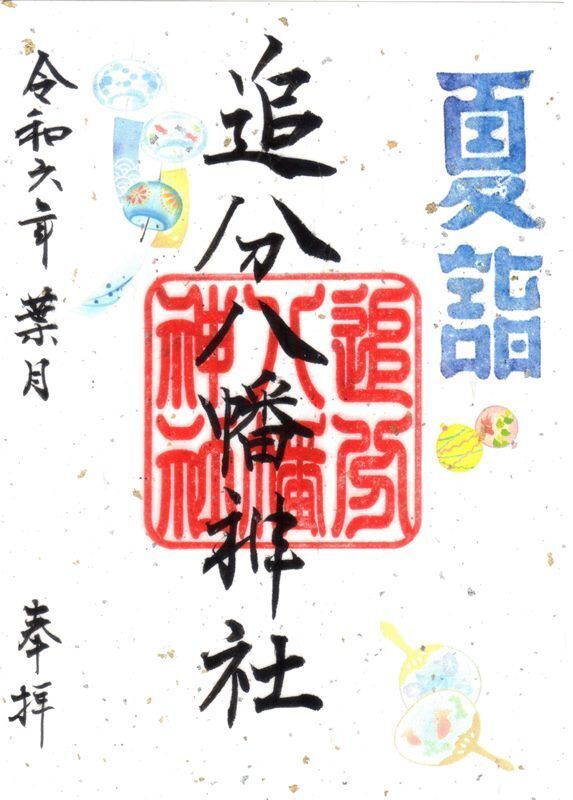 夏詣
追分八幡神社
追分
八幡
神社
令和六年葉月
奉拝